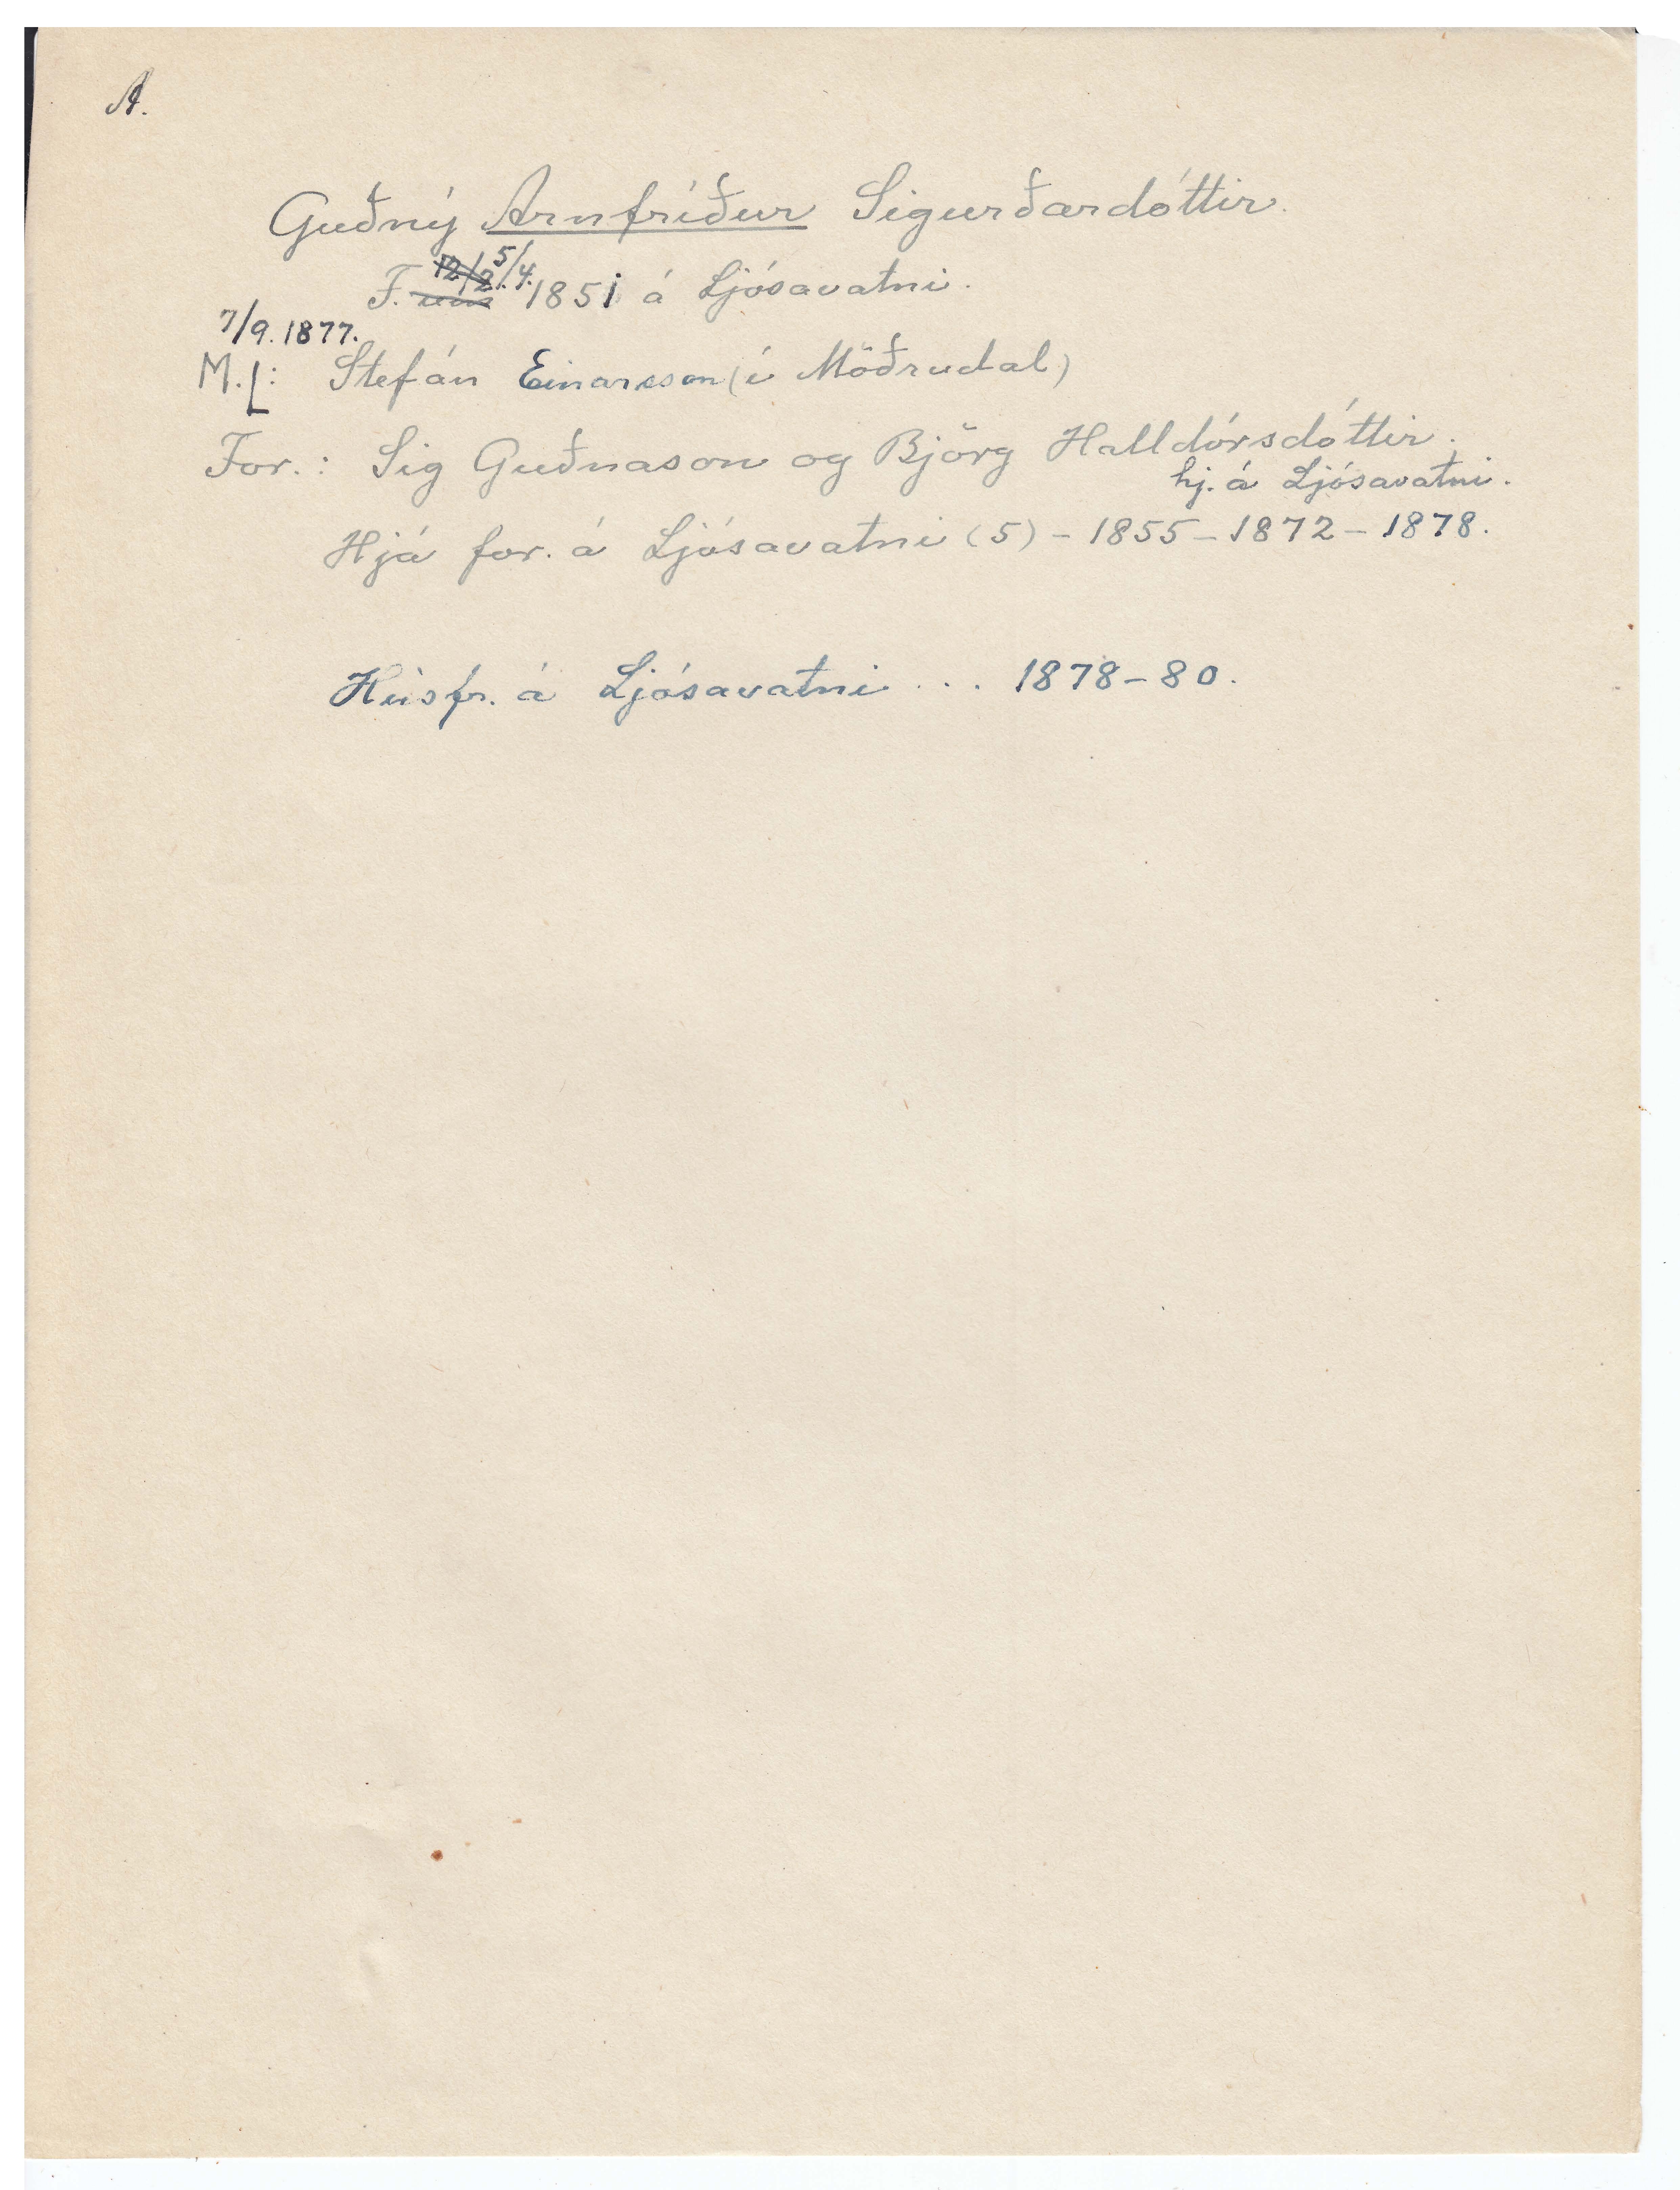 A.
Guðný Arnfríður Sigurðardóttir.
12/2. 5/4.
F. um 1851 á Ljósavatni.
7/9. 1877.
M.: Stefán Einarsson (í Möðrudal)
For.: Sig Guðnason og Björg Halldórsdóttir.
hj. á Ljósavatni.
Hjá for. á Ljósavatni (5) - 1855 - 1872 - 1878.
Húsfr. á Ljósavatni ... 1878-80.